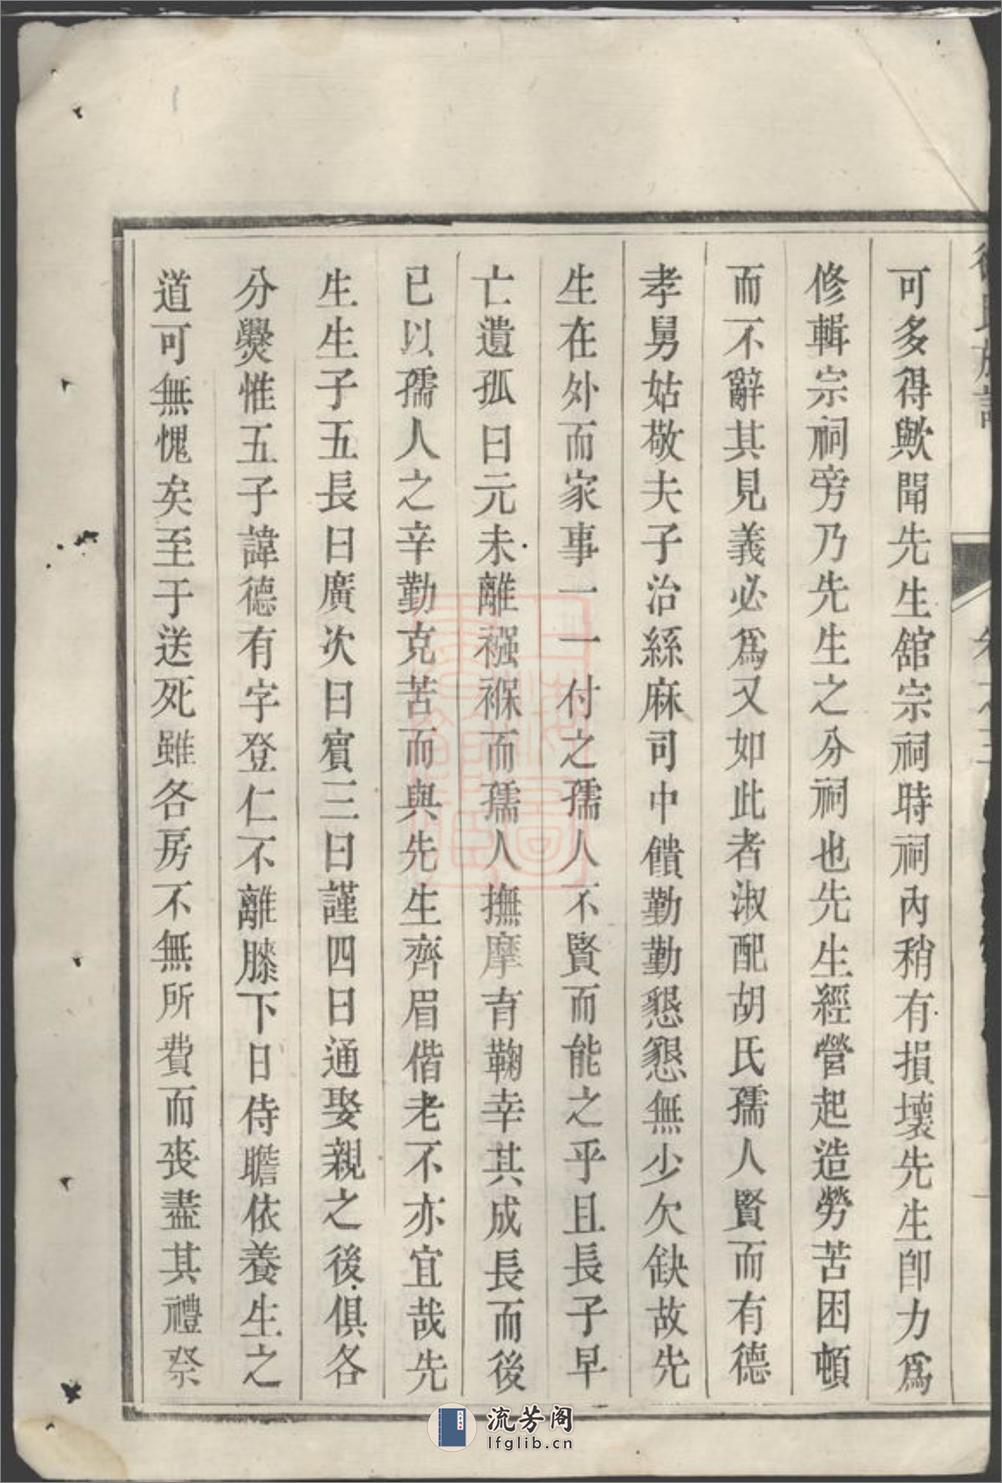 可多得歟聞先生舘宗祠時祠內稍有損壞先生卽力爲
修輯宗祠旁乃先生之分祠也先生經營起造勞苦困頓
而不辭其見義必爲又如此者淑配胡氏孺人賢而有德
孝舅姑敬夫子治絲麻司中饋勤勤懇懇無少欠缺故先
生在外而家事一一付之孺人不賢而能之乎且長子早
亡遺孤曰元未離襁褓而孺人撫摩育鞠幸其成長而後
已以孺人之辛勤克苦而與先生齊眉偕老不亦宜哉先
生生子五長曰廣次曰賓三曰謹四曰通娶親之後俱各
分爨惟五子諱德有字登仁不離膝下日侍瞻依養生之
道可無愧矣至于送死雖各房不無所費而喪盡其禮祭
流芳阁
lfglib.cn